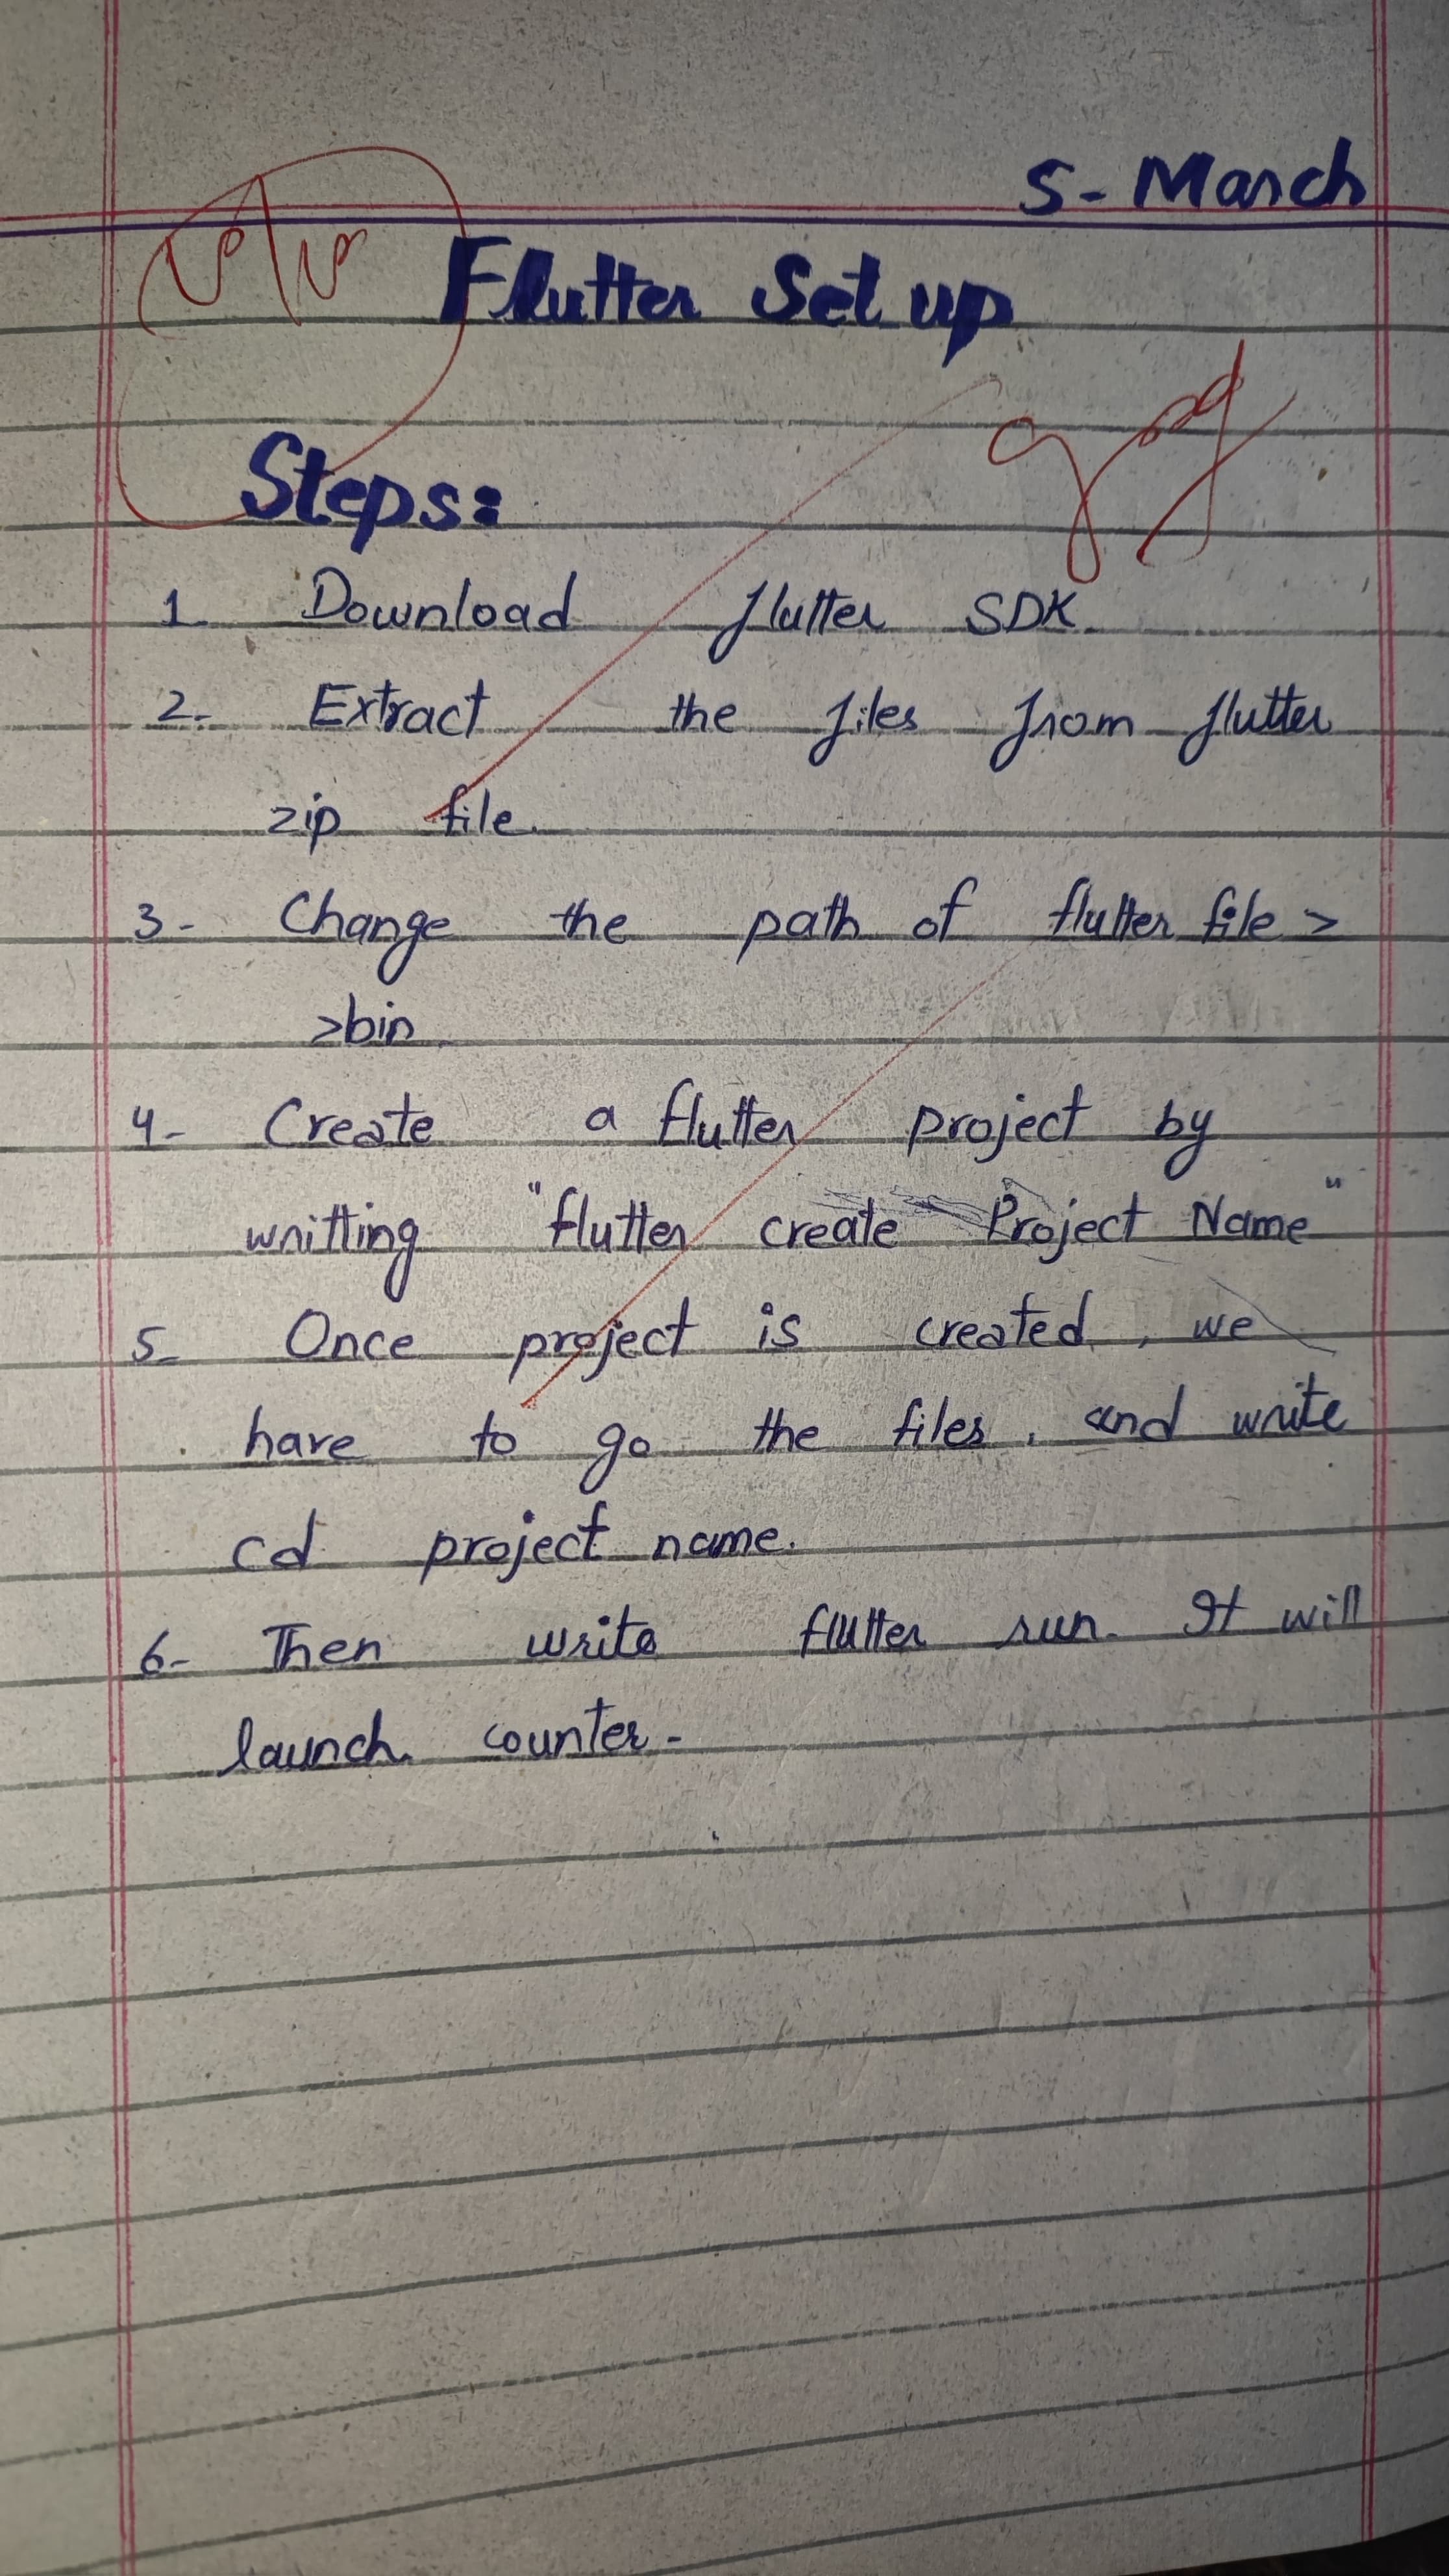 5- March
Flutter Set up
Steps:
1. Download flutter SDK.
2- Extract the files from flutter
zip file.
3- Change the path of flutter file >
>bin.
4- Create a flutter project by
writting "flutter create Project Name"
5- Once project is created, we
have to go the files, and write
cd project name.
6- Then write flutter run. It will
launch counter-